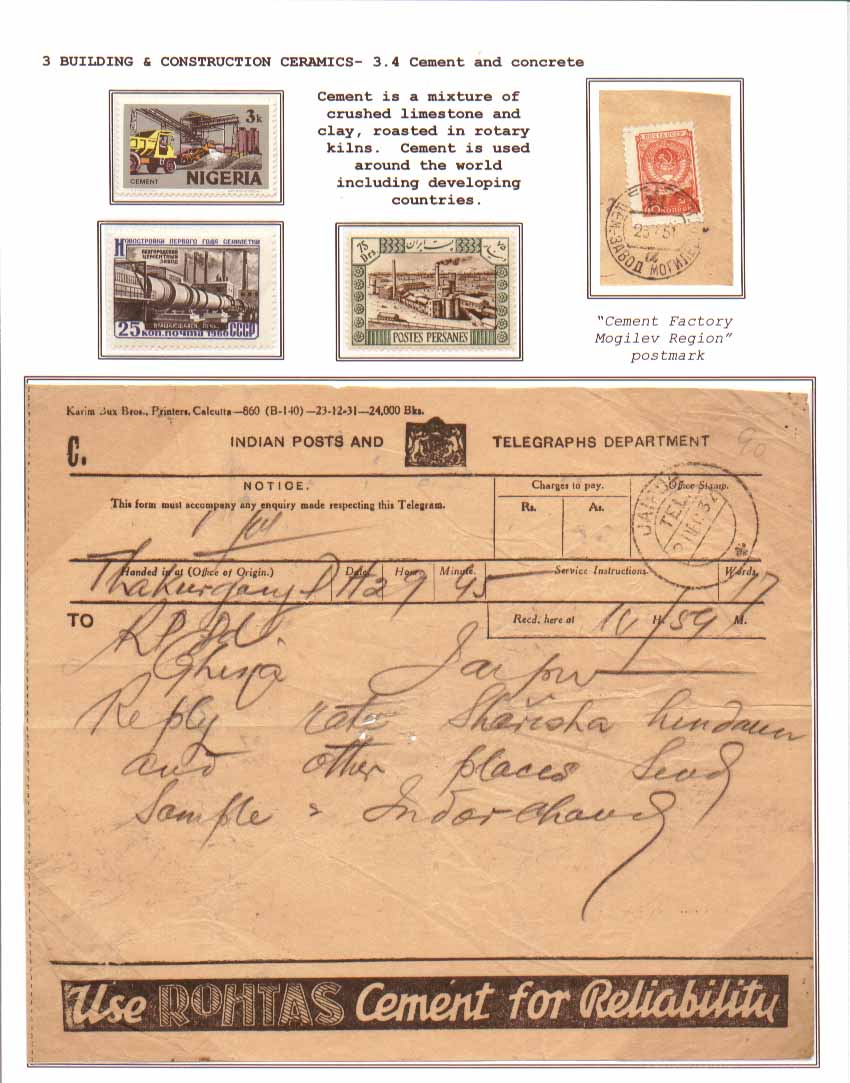 3 BUILDING & CONSTRUCTION CERAMICS- 3.4 Cement and concrete
3k
CEMENT
NIGERIA
Cement is a mixture of
crushed limestone and
clay, roasted in rotary
kilns. Cement is used
around the world
including developing
countries.
НОВОСТРОЙКИ ПЕРВОГО ГОДА СЕМИЛЕТКИ
БЕЛГОРОДСКИЙ
ЦЕМЕНТНЫЙ
ЗАВОД
ВРАЩАЮЩАЯСЯ ПЕЧЬ
25 КОП. ПОЧТА 1960 СССР
75 Drs.
پست ایران
POSTES PERSANES
ПОЧТА СССР
ЗАВОД МОГИЛЕВ
"Cement Factory
Mogilev Region"
postmark
Karim Bux Bros., Printers, Calcutta—860 (B-140) —23-12-31—24,000 Bks.
C.
INDIAN POSTS AND TELEGRAPHS DEPARTMENT
90
NOTICE.
This form must accompany any enquiry made respecting this Telegram.
Charges to pay.
Rs. As.
Office Stamp.
JAIPUR
TEL.
32
Handed in at (Office of Origin.) Date. Hour. Minute. Service Instructions. Words.
Thakurganj 9 45 17
TO
Recd. here at 10 H. 59 M.
Ghisa Jaipur
Reply rate Sharisha hindaun
and other places Send
Sample = Indorchand
Use ROHTAS Cement for Reliability